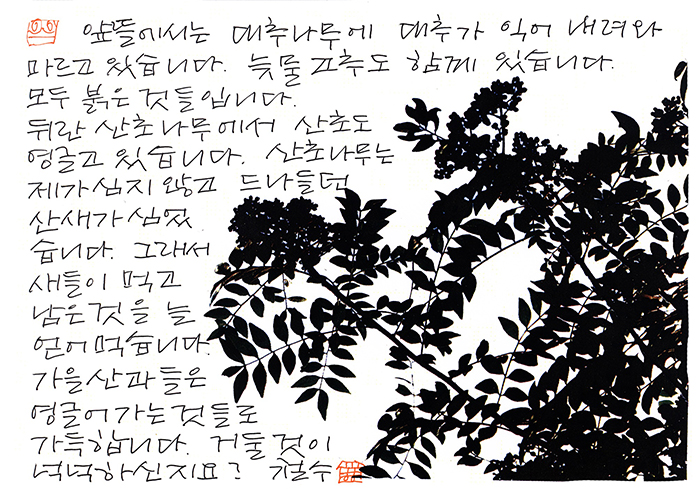 앞뜰에서는 대추나무에 대추가 익어 내려와
마르고 있습니다. 늦물고추도 함께 있습니다.
모두 붉은 것들입니다.
뒤란 산초나무에서 산초도
영글고 있습니다. 산초나무는
제가심지 않고 드나들던
산새가 심었
습니다. 그래서
새들이 먹고
남은것을 늘
얻어먹습니다.
가을산과들은
영글어가는것들로
가득합니다. 거둘것이
넉넉하신지요? 철수